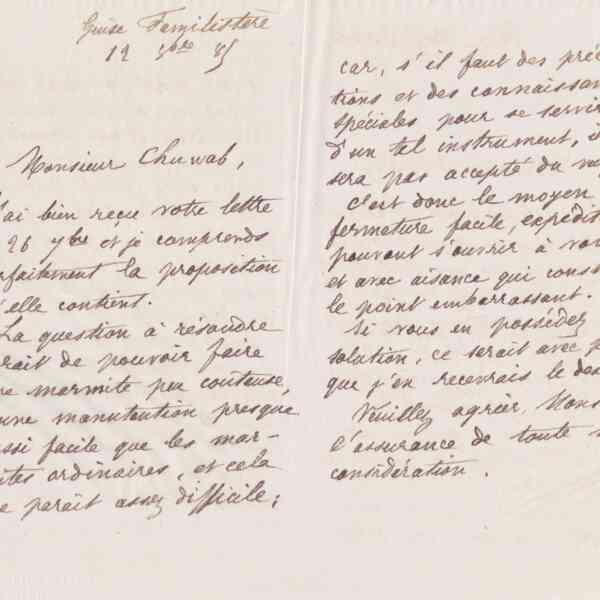 Guise Familistère
12 8bre 85
Monsieur Chuwab,
'ai bien reçu votre lettre
26 7bre et je comprends
rfaitement la proposition
'elle contient.
La question à résoudre
rait de pouvoir faire
ne marmite peu couteuse,
une manutention presque
ssi facile que les mar-
ites ordinaires, et cela
e parait assez difficile;
car, s'il faut des préc
tions et des connaissan
spéciales pour se servir
d'un tel instrument, i
sera pas accepté du m
C'est donc le moyen
fermeture facile, expédit
pouvant s'ouvrir à vo
et avec aisance qui cons
le point embarrassant.
Si vous en possédez
solution, ce serait avec p
que j'en recevrais le des
Veuillez agréer, Mons
l'assurance de toute
considération.